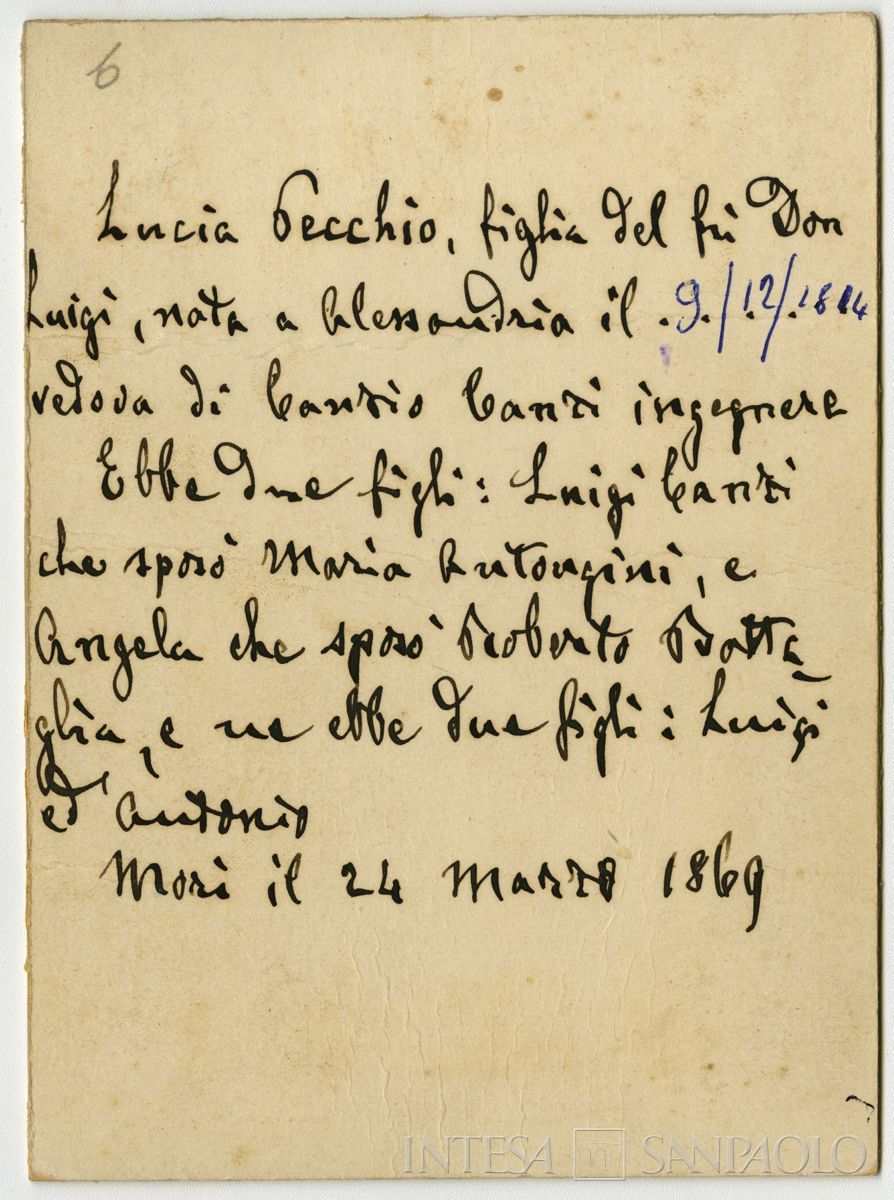 6
Lucia Pecchio, figlia del fù Don
Luigi, nata a Alessandria il .9./.12/.1814
vedova di Canzio Canzi ingegnere
Ebbe due figli: Luigi Canzi
che sposò Maria Antongini, e
Angela che sposò Roberto Batta_
glia, e ne ebbe due figli: Luigi
ed Antonio
Morì il 24 Marzo 1869
INTESA SANPAOLO